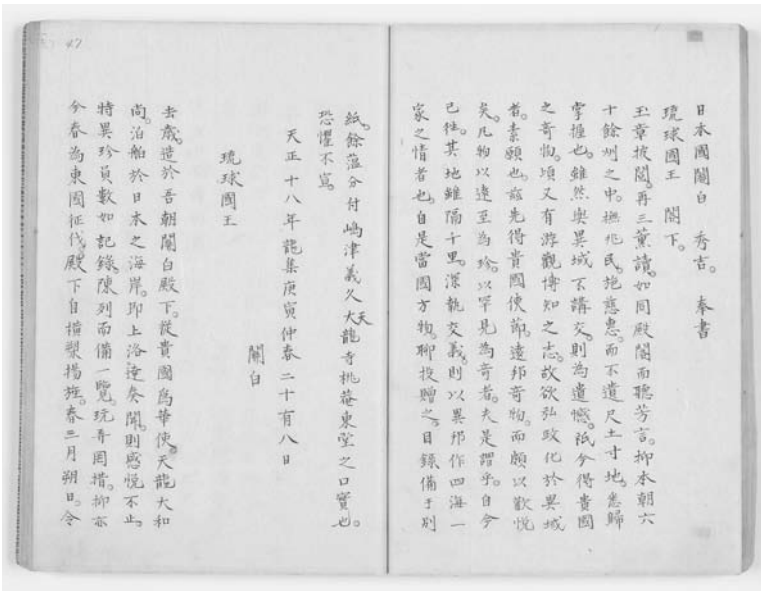 日本國關白 秀吉。 奉書
琉球國王 閣下。
玉章披閱。再三薰讀。如同殿閣而聽芳言。抑本朝六
十餘州之中。撫兆民。施慈惠。而不遺尺土寸地。悉歸
掌握也。雖然與異域不講交。則為遺憾。祇今得貴國
之奇物。頃又有游觀博知之志。故欲弘政化於異域
者。素願也。茲先得貴國使節。遠邦奇物。而頗以歡悅
矣。凡物以遠至為珍。以罕見為奇者。夫是謂乎。自今
已往。其地雖隔千里。深執交義。則以異邦作四海一
家之情者也。自是當國方物。聊投贈之。目錄備于別
47
紙。餘蘊分付嶋津義久大天龍寺桃菴東堂之口實也。
恐懼不宣。
天正十八年龍集庚寅仲春二十有八日
關白
琉球國王
去歲。造於吾朝關白殿下。從貴國為華使。天龍大和
尚。泊船於日本之海岸。即上洛達矣。聞則感悅不止。
特異珍員數如記錄。陳列而備一覽。玩弄罔措。抑亦
今春為東國征伐。殿下自橫槊揚旌。春三月朔日。令